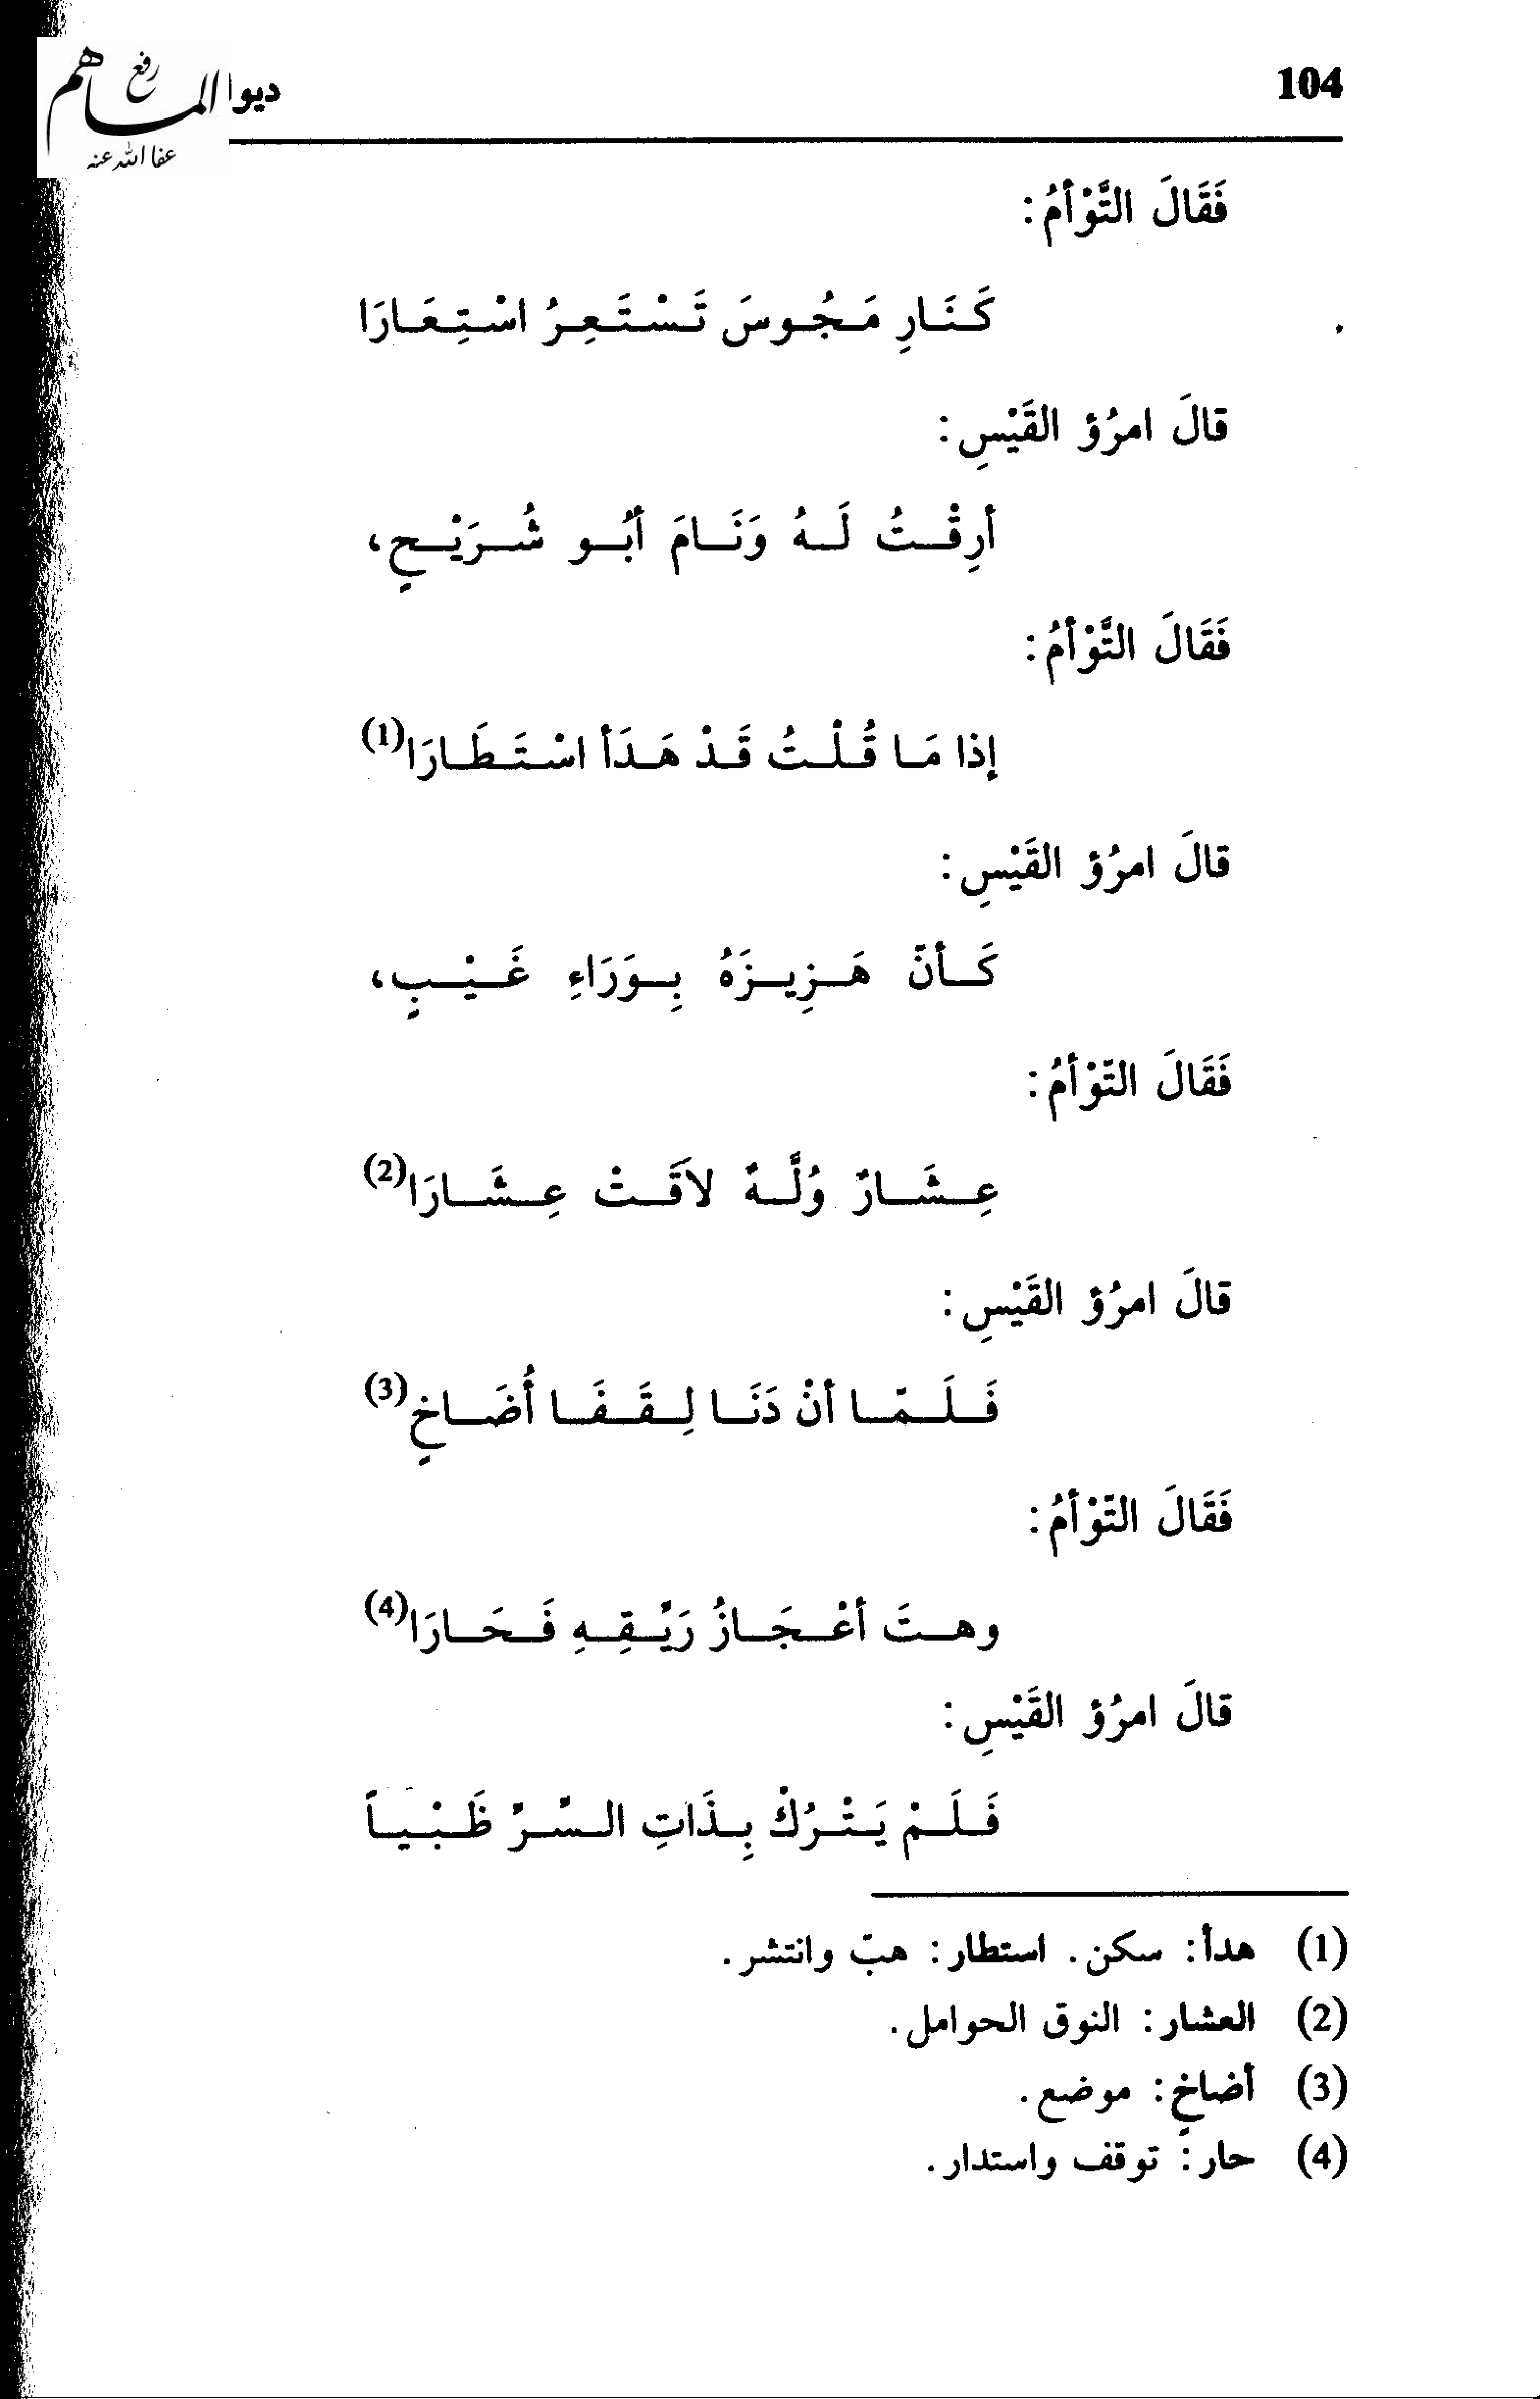 104
ديوا
رفع
عفا الله عنه
فَقَالَ التَّوْأمُ:
كَنَارِ مَجُوسَ تَسْتَعِرُ اسْتِعَارَا
قالَ امرُؤ القَيْسِ:
أرِقْتُ لَهُ وَنَامَ أبُو شُرَيْحٍ،
فَقَالَ التَّوْأمُ:
إذا مَا قُلْتُ قَدْ هَدَأ اسْتَطَارَا(1)
قالَ امرُؤ القَيْسِ:
كَأنّ هَزِيزَهُ بِوَرَاءِ غَيْبٍ،
فَقَالَ التّوْأمُ:
عِشَارٌ وُلَّهٌ لاَقَتْ عِشَارَا(2)
قالَ امرُؤ القَيْسِ:
فَلَمّا أنْ دَنَا لِقَفَا أُضَاخٍ(3)
فَقَالَ التّوْأمُ:
وهتَ أعْجَازُ رَيِّقِهِ فَحَارَا(4)
قالَ امرُؤ القَيْسِ:
فَلَمْ يَتْرُكْ بِذَاتِ السِّرِّ ظَبْياً
(1) هدأ: سكن. استطار: هبّ وانتشر.
(2) العشار: النوق الحوامل.
(3) أضاخٍ: موضع.
(4) حار: توقف واستدار.